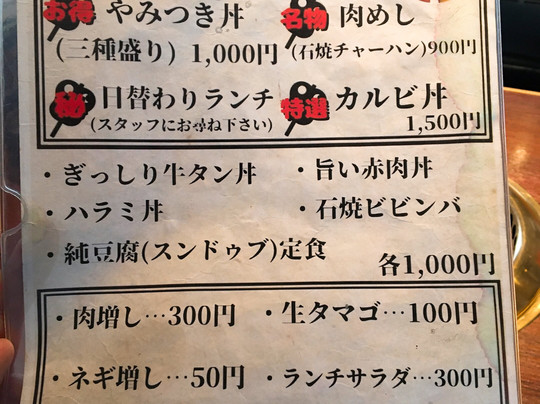 お得 やみつき丼 名物 肉めし
(三種盛り) 1,000円 (石焼チャーハン)900円
秘 日替わりランチ 特選 カルビ丼
(スタッフにお尋ね下さい) 1,500円
・ぎっしり牛タン丼 ・旨い赤肉丼
・ハラミ丼 ・石焼ビビンバ
・純豆腐(スンドゥブ)定食 各1,000円
・肉増し…300円 ・生タマゴ…100円
・ネギ増し…50円 ・ランチサラダ…300円